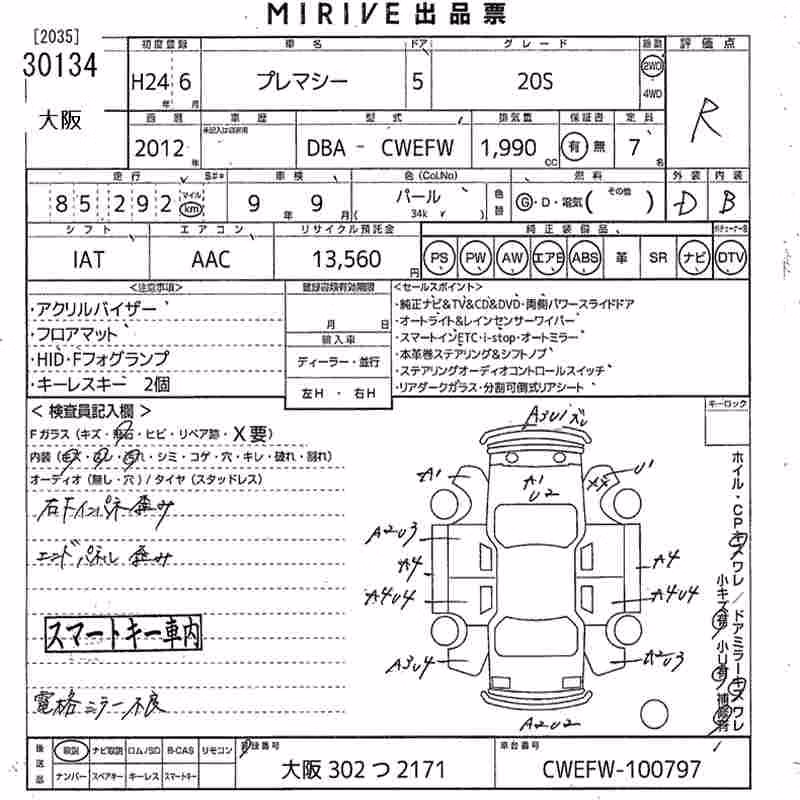 MIRIVE 出品票
[2035]
30134
大阪
初度登録 車名 ドア グレード 駆動 評価点
H24 6 プレマシー 5 20S 2WD
年 月 4WD
R
西暦 車歴 型式 排気量 保証書 定員
未記入は自家用
2012 年 DBA - CWEFW 1,990 CC 有 無 7 名
走行 車検 色(Col.No) 燃料 外装 内装
85,292 マイル km 9 年 9 月 パール 34k 色替 G・D・電気( その他 ) D B
シフト エアコン リサイクル預託金 純正装備品
IAT AAC 13,560 円 PS PW AW エアB ABS 革 SR ナビ DTV
<注意事項> 登録書類有効期限 <セールスポイント>
・アクリルバイザー
・フロアマット
・HID・Fフォグランプ
・キーレスキー 2個
月 日
輸入車
ディーラー・並行
左H ・ 右H
・純正ナビ&TV&CD&DVD・両側パワースライドドア
・オートライト&レインセンサーワイパー
・スマートインETC・i-stop・オートミラー
・本革巻ステアリング&シフトノブ
・ステアリングオーディオコントロールスイッチ
・リアダークガラス・分割可倒式リアシート
キーロック
< 検査員記入欄 >
Fガラス (キズ・飛石・ヒビ・リペア跡・X要)
内装 (キズ・コレ・汚れ・シミ・コゲ・穴・キレ・破れ・割れ)
オーディオ (無し・穴) / タイヤ (スタッドレス)
右Fインパネ歪み
エンドパネル 歪み
スマートキー車内
電格ミラー不良
A3U1ズレ
A1
A1
U2
XX
U1
A2U3
A4
A4
A4U4
A4U4
A3U4
A2U3
A2U2
ホイル・CPキズワレ/ドアミラーキズワレ
小キズ有/小U有/補修有
後送品 取説 ナビ取説 ロムノSD B-CAS リモコン 登録番号 車台番号
ナンバー スペアキー キーレス スマートキー 大阪 302 つ 2171 CWEFW-100797